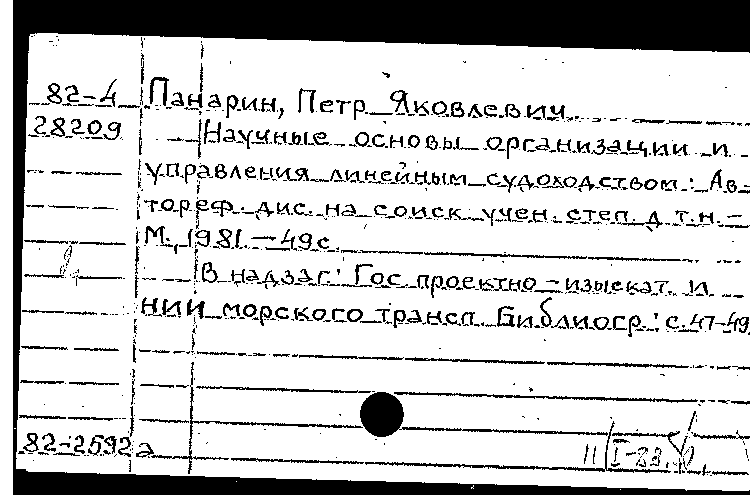 82-4 Панарин, Петр Яковлевич.
28209 Научные основы организации и
управления линейным судоходством: Ав-
тореф. дис. на соиск. учен. степ. д.т.н.-
М., 1981.-49с.
В надзаг: Гос. проектно-изыскат. и
нии морского трансп. Библиогр.: с.47-49
82-2592а
11/I-83.